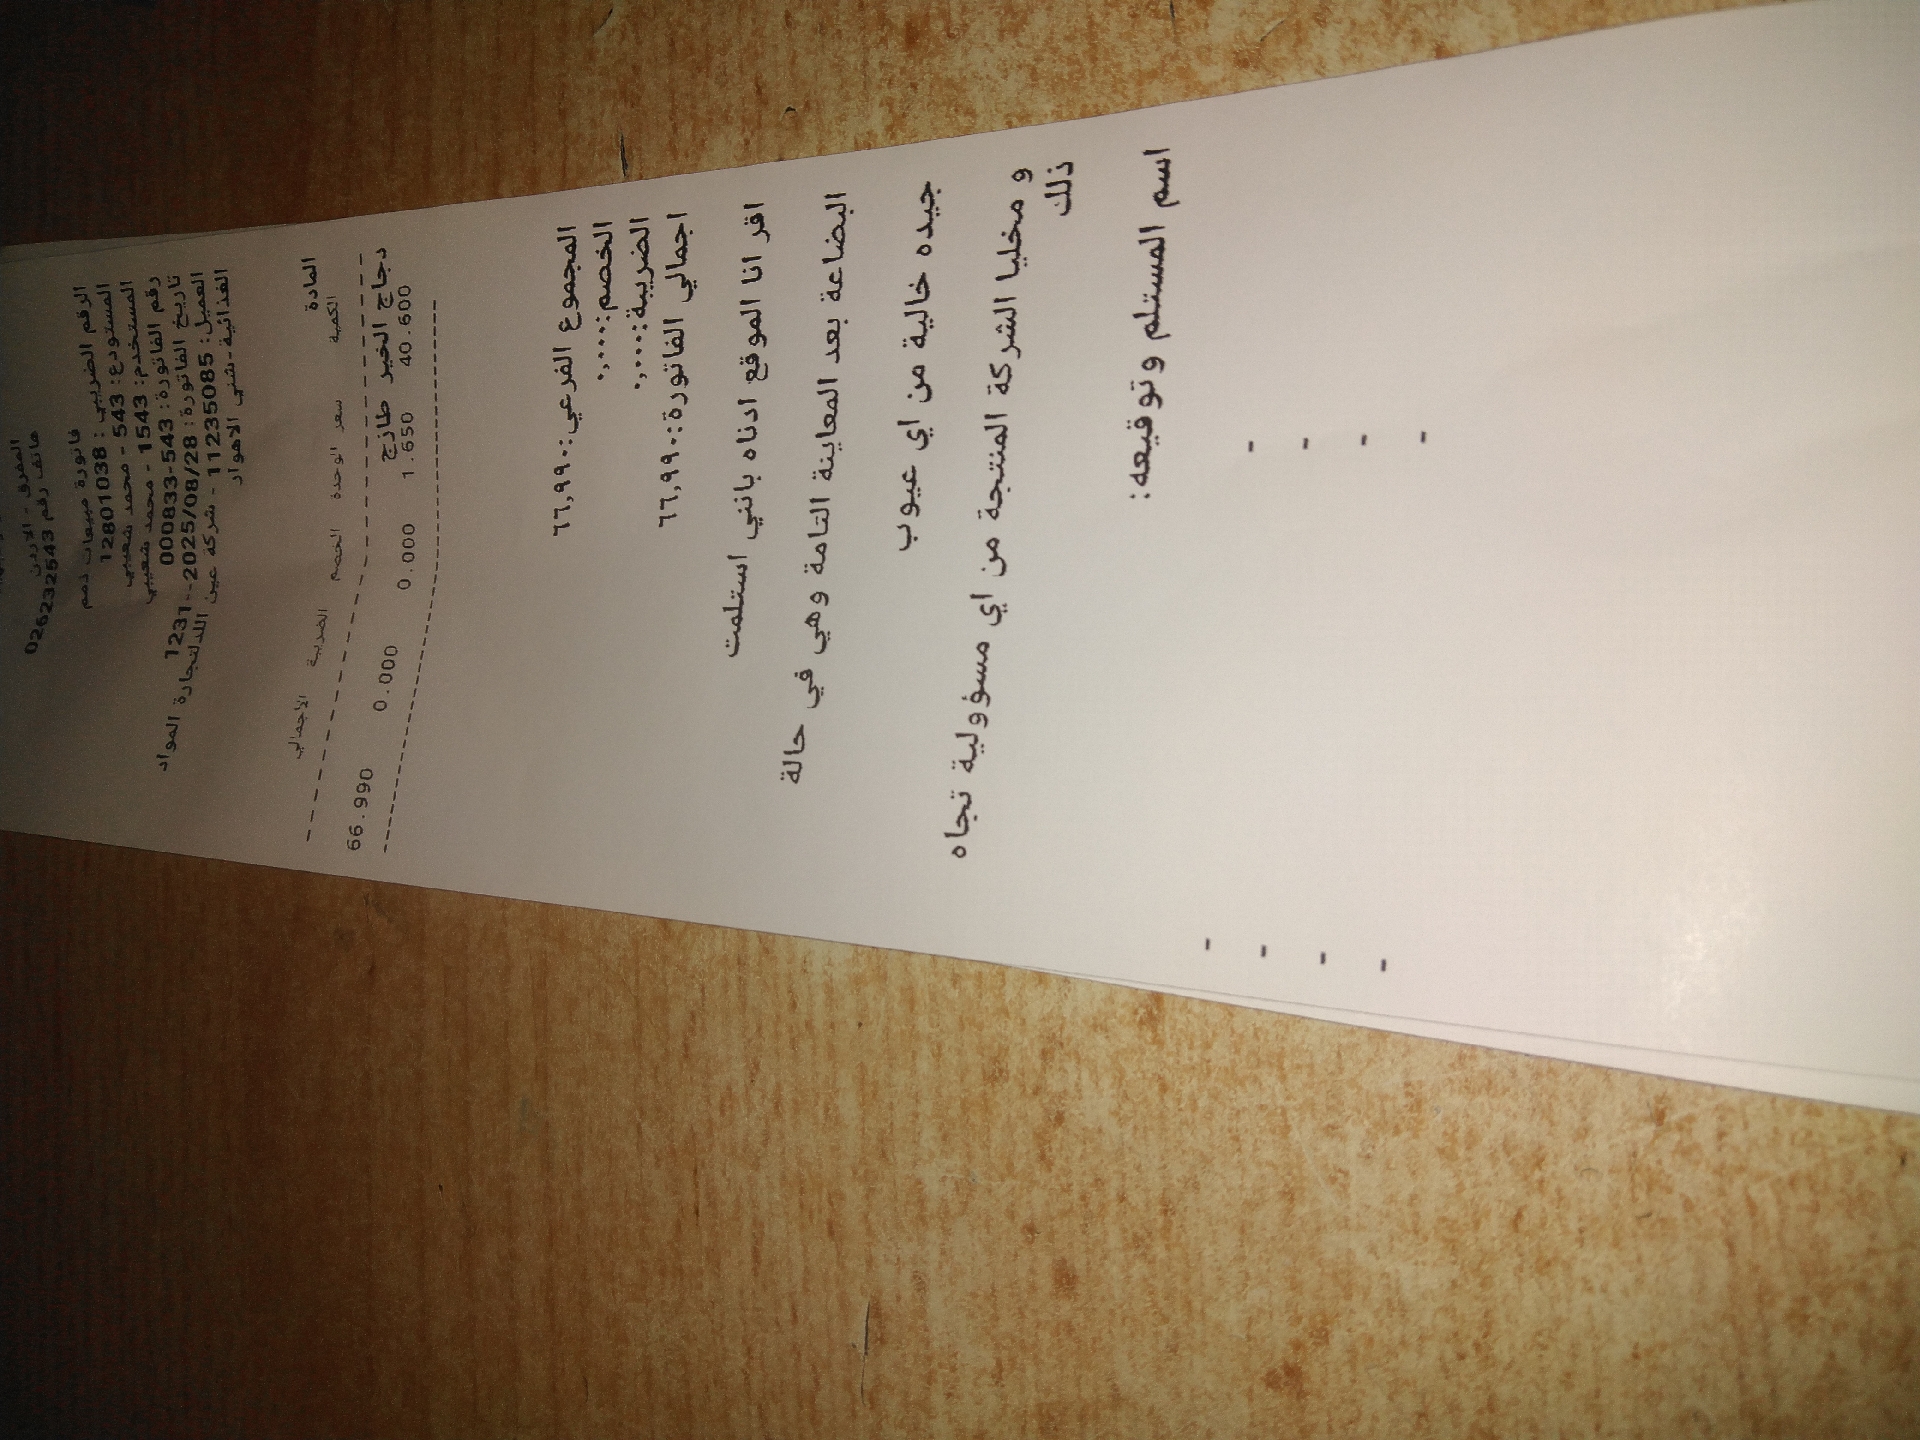 المفرق - الاردن
هاتف رقم 026232543
فاتورة مبيعات ذمم
الرقم الضريبي : 12801038
المستودع: 543 - محمد شعيبي
المستخدم: 1543 - محمد شعيبي
رقم الفاتورة: 543-000833
تاريخ الفاتورة: 2025/08/28--1231
العميل: 11235085 - شركة عين اللدلتجارة المواد
الغذائية-شني الاهواد
المادة
الكمية سعر الوحدة الخصم الضريبة الاجمالي
دجاج الخير طازج
40.600 1.650 0.000 0.000 66.990
المجموع الفرعي:٦٦,٩٩٠
الخصم:٠,٠٠٠
الضريبة:٠,٠٠٠
اجمالي الفاتورة:٦٦,٩٩٠
اقر انا الموقع ادناه بانني استلمت
البضاعة بعد المعاينة التامة وهي في حالة
جيده خالية من اي عيوب
و مخليا الشركة المنتجة من اي مسؤولية تجاه
ذلك
اسم المستلم وتوقيعه: